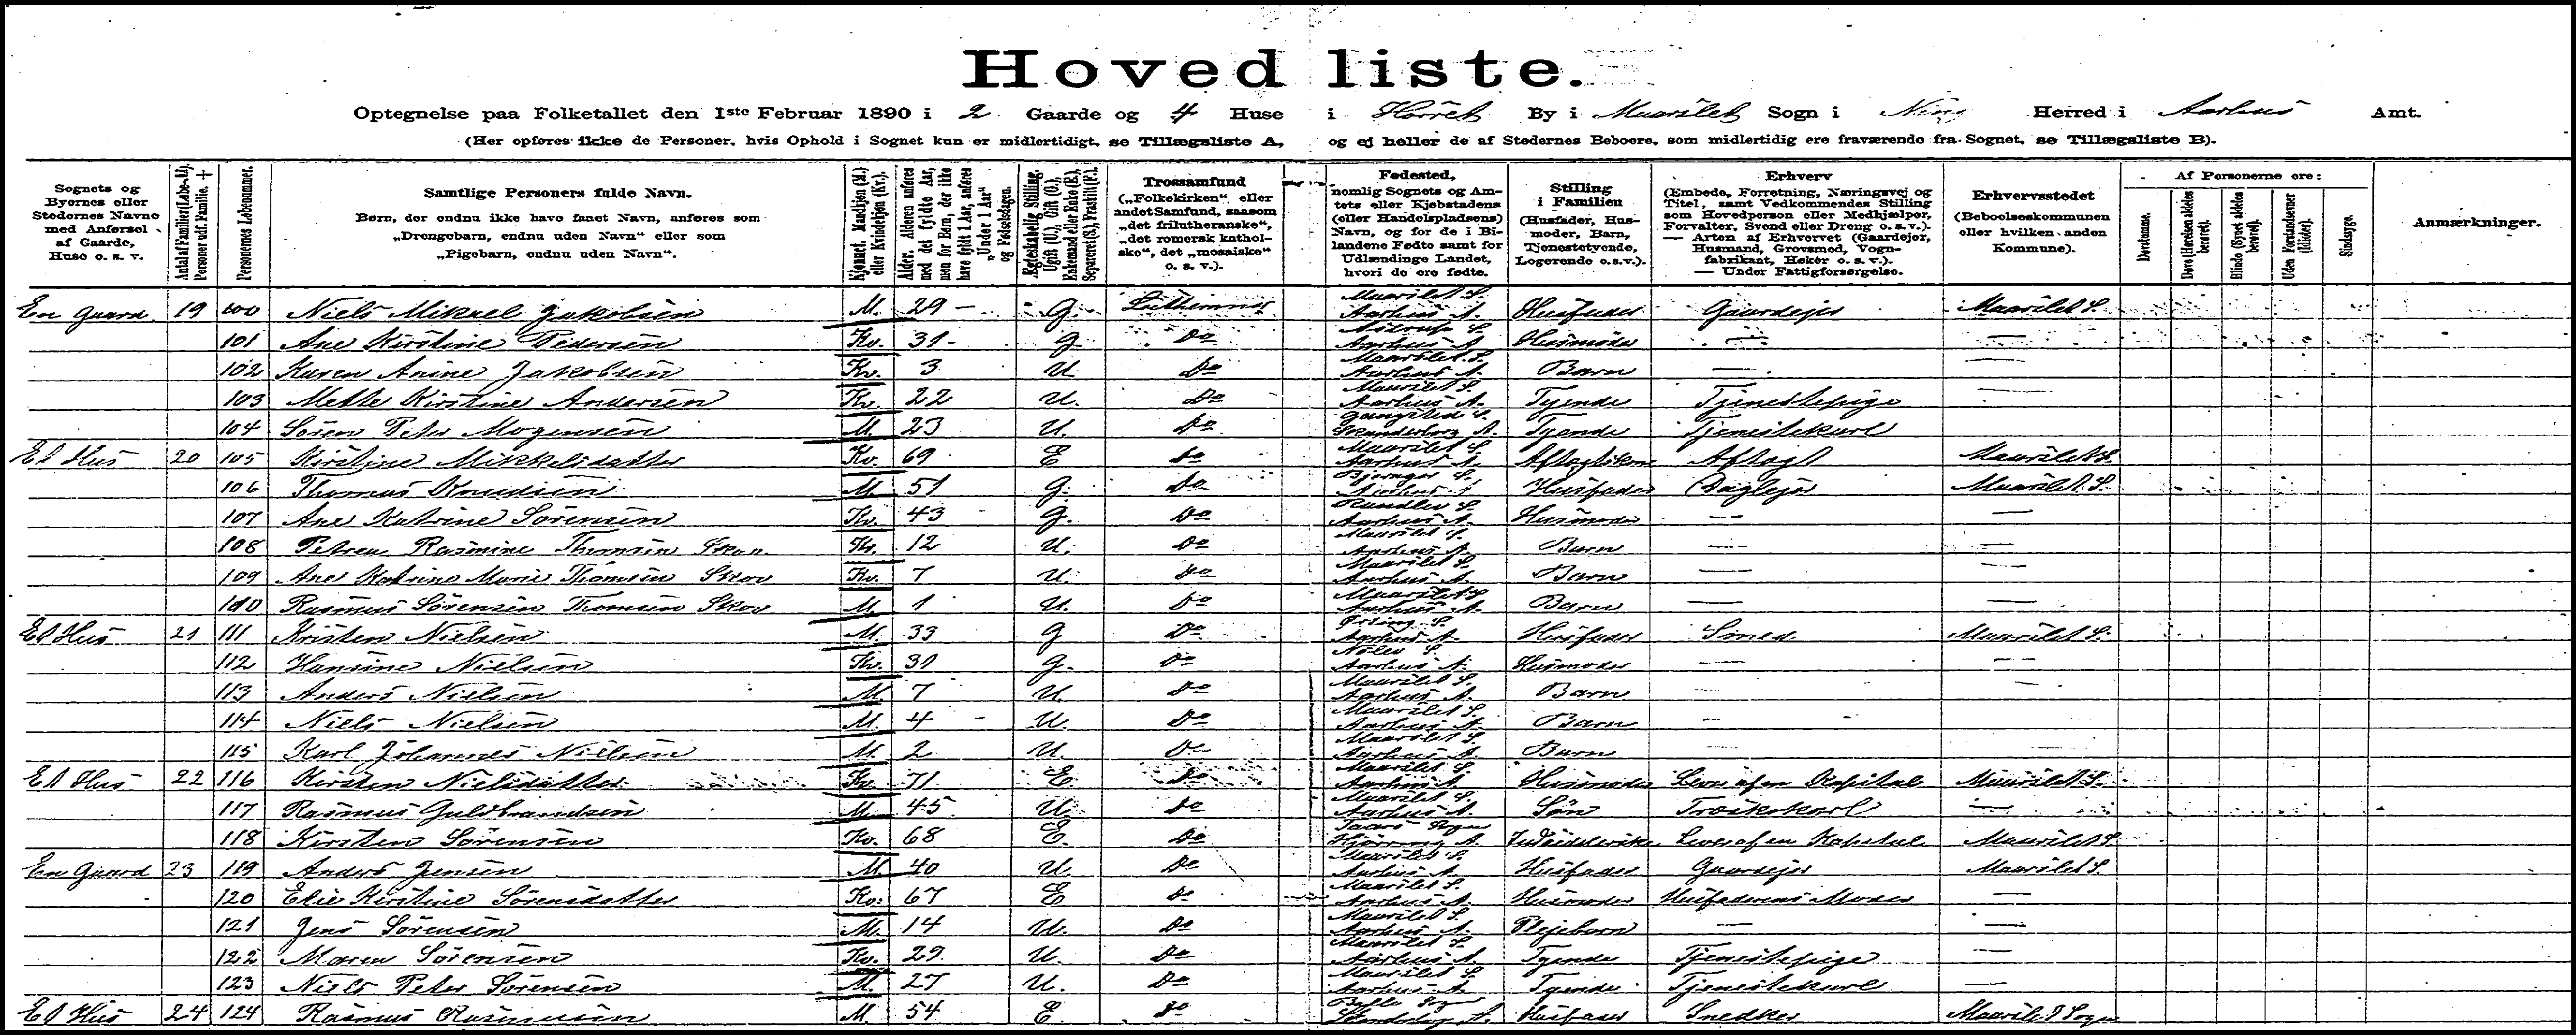 Hovedliste.
Optegnelse paa Folketallet den 1ste Februar 1890 i 2 Gaarde og 4 Huse i Hørret By i Maarslet Sogn i Ning Herred i Aarhus Amt.
(Her opføres ikke de Personer, hvis Ophold i Sognet kun er midlertidigt, se Tillægsliste A, og ej heller de af Stedernes Beboere, som midlertidig ere fraværende fra Sognet, se Tillægsliste B).
Sognets og Byernes eller Stedernes Navne med Anførsel af Gaarde, Huse o. s. v.
Antal af Familier (Løbe-Nr). Personer udf. Familie. +
Personernes Løbenummer.
Samtlige Personers fulde Navn.
Børn, der endnu ikke have faaet Navn, anføres som „Drengebarn, endnu uden Navn“ eller som „Pigebarn, endnu uden Navn“.
Kjønnet. Mandkjøn (M.) eller Kvindekjøn (Kv.).
Alder. Alderen anføres med det fyldte Aar, men for Børn, der ikke have fyldt 1 Aar, anføres „Under 1 Aar“ og Fødselsdagen.
Ægteskabelig Stilling. Ugift (U.), Gift (G.), Enkemand eller Enke (E.), Separeret (S.), Fraskilt (F.).
Trossamfund („Folkekirken“ eller andet Samfund, saasom „det frilutheranske“, „det romersk katholske“, det „mosaiske“ o. s. v.).
Fødested, nemlig Sognets og Amtets eller Kjøbstadens (eller Handelspladsens) Navn, og for de i Bilandene Fødte samt for Udlændinge Landet, hvori de ere fødte.
Stilling i Familien (Husfader, Husmoder, Barn, Tjenestetyende, Logerende o.s.v.).
Erhverv (Embede, Forretning, Næringsvej og Titel, samt Vedkommendes Stilling som Hovedperson eller Medhjælper, Forvalter, Svend eller Dreng o. s. v.). — Arten af Erhvervet (Gaardejer, Husmand, Grovsmed, Vognfabrikant, Høker o. s. v.). — Under Fattigforsørgelse.
Erhvervsstedet (Beboelseskommunen eller hvilken anden Kommune).
Af Personerne ere:
Døvstumme.
Døve (Hørelsen aldeles berøvet).
Blinde (Synet aldeles berøvet).
Uden Forstandsevner (Idioter).
Sindssyge.
Anmærkninger.
En Gaard 19 100 Niels Mikael Jakobsen M. 29 G. Maarslet S. Aarhus A. Husfader Gaardejer Maarslet S.
101 Ane Kirstine Pedersen Kv. 31 G. Do Aarhus A. Husmoder — —
102 Karen Anine Jakobsen Kv. 3 U. Do Maarslet S. Aarhus A. Barn — —
103 Mette Kirstine Andersen Kv. 22 U. Do Maarslet S. Aarhus A. Tyende Tjenestepige —
104 Søren Peter Mogensen M. 23 U. Do Skanderborg A. Tyende Tjenestekarl
Et Hus 20 105 Kirstine Mikkelsdatter Kv. 69 E Do Maarslet S. Aarhus A. Aftægt Maarslet S.
106 Thomas Knudsen M. 51 G. Do Aarhus A. Husfader Daglejer Maarslet S.
107 Ane Katrine Sørensen Kv. 43 G. Do Aarhus A. Husmoder — —
108 Petrea Rasmine Thomsen Skov Kv. 12 U. Do Maarslet S. Aarhus A. Barn — —
109 Ane Katrine Marie Thomsen Skov Kv. 7 U. Do Maarslet S. Aarhus A. Barn — —
110 Rasmus Sørensen Thomsen Skov M. 1 U. Do Maarslet S. Aarhus A. Barn — —
Et Hus 21 111 Kristen Nielsen M. 33 G Do Aarhus A. Husfader Smed Maarslet S.
112 Hansine Nielsen Kv. 31 G. Do Nølev S. Aarhus A. Husmoder — —
113 Anders Nielsen M. 7 U. Do Maarslet S. Aarhus A. Barn — —
114 Niels Nielsen M. 4 U. Do Maarslet S. Aarhus A. Barn — —
115 Karl Johannes Nielsen M. 2 U. Do Maarslet S. Aarhus A. Barn — —
Et Hus 22 116 Kirsten Nielsdatter Kv. 71 E. Do Maarslet S. Aarhus A. Husmoder Lever af en Kapital Maarslet S.
117 Rasmus Guldbrandsen M. 45 U. Do Maarslet S. Aarhus A. Søn Træskokarl —
118 Kirsten Sørensen Kv. 68 E. Do Taars Sogn Hjørring A. Lever af en Kapital Maarslet S.
En Gaard 23 119 Anders Jensen M. 40 U. Do Maarslet S. Aarhus A. Husfader Gaardejer Maarslet S.
120 Else Kirstine Sørensdatter Kv. 67 E Do Maarslet S. Aarhus A. Husmoder Husfaderens Moder —
121 Jens Sørensen M. 14 U. Do Maarslet S. Aarhus A. Plejebarn — —
122 Maren Sørensen Kv. 29 U. Do Maarslet S. Aarhus A. Tyende Tjenestepige —
123 Niels Peter Sørensen M. 27 U. Do Maarslet S. Aarhus A. Tyende Tjenestekarl —
Et Hus 24 124 Rasmus Rasmussen M. 54 E Do Sogn Skanderborg A. Husfader Snedker Maarslet Sogn